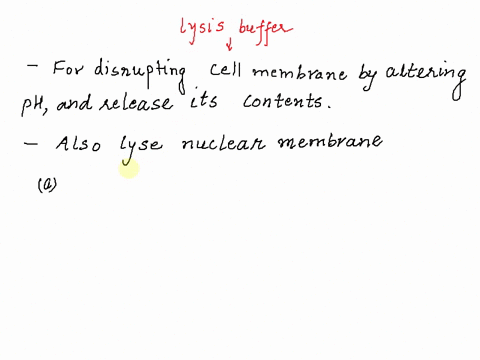 lysis buffer
- For disrupting cell membrane by altering
pH, and release its contents.
- Also lyse nuclear membrane
(a)